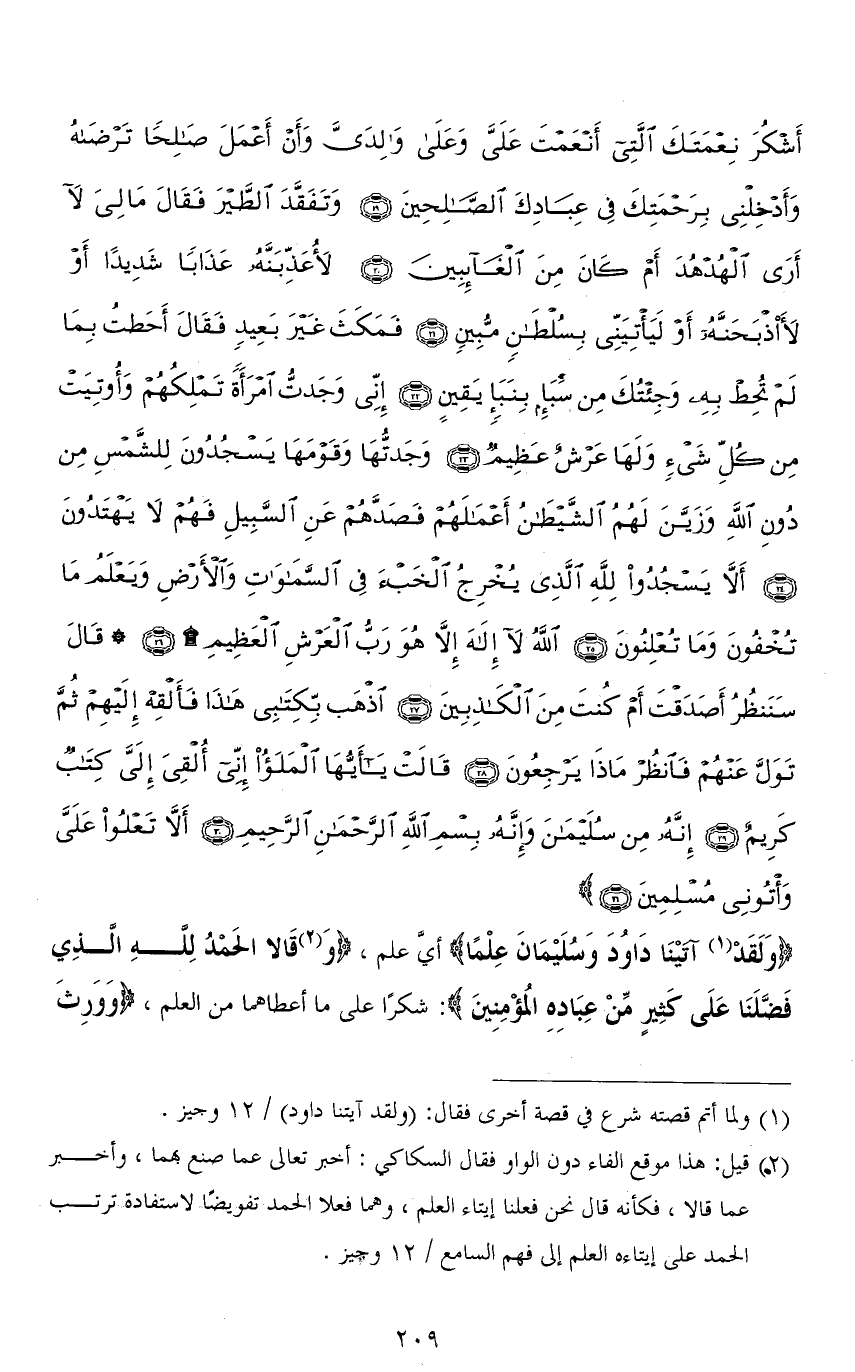 أَشْكُرَ نِعْمَتَكَ ٱلَّتِىٓ أَنْعَمْتَ عَلَىَّ وَعَلَىٰ وَٰلِدَىَّ وَأَنْ أَعْمَلَ صَٰلِحًا تَرْضَىٰهُ
وَأَدْخِلْنِى بِرَحْمَتِكَ فِى عِبَادِكَ ٱلصَّٰلِحِينَ ﴿١٩﴾ وَتَفَقَّدَ ٱلطَّيْرَ فَقَالَ مَالِىَ لَآ
أَرَى ٱلْهُدْهُدَ أَمْ كَانَ مِنَ ٱلْغَآئِبِينَ ﴿٢٠﴾ لَأُعَذِّبَنَّهُۥ عَذَابًا شَدِيدًا أَوْ
لَأَاْذْبَحَنَّهُۥٓ أَوْ لَيَأْتِيَنِّى بِسُلْطَٰنٍ مُّبِينٍ ﴿٢١﴾ فَمَكَثَ غَيْرَ بَعِيدٍ فَقَالَ أَحَطتُ بِمَا
لَمْ تُحِطْ بِهِۦ وَجِئْتُكَ مِن سَبَإٍۭ بِنَبَإٍ يَقِينٍ ﴿٢٢﴾ إِنِّى وَجَدتُّ ٱمْرَأَةً تَمْلِكُهُمْ وَأُوتِيَتْ
مِن كُلِّ شَىْءٍ وَلَهَا عَرْشٌ عَظِيمٌ ﴿٢٣﴾ وَجَدتُّهَا وَقَوْمَهَا يَسْجُدُونَ لِلشَّمْسِ مِن
دُونِ ٱللَّهِ وَزَيَّنَ لَهُمُ ٱلشَّيْطَٰنُ أَعْمَٰلَهُمْ فَصَدَّهُمْ عَنِ ٱلسَّبِيلِ فَهُمْ لَا يَهْتَدُونَ
﴿٢٤﴾ أَلَّا يَسْجُدُواْ لِلَّهِ ٱلَّذِى يُخْرِجُ ٱلْخَبْءَ فِى ٱلسَّمَٰوَٰتِ وَٱلْأَرْضِ وَيَعْلَمُ مَا
تُخْفُونَ وَمَا تُعْلِنُونَ ﴿٢٥﴾ ٱللَّهُ لَآ إِلَٰهَ إِلَّا هُوَ رَبُّ ٱلْعَرْشِ ٱلْعَظِيمِ ۩ ﴿٢٦﴾ * قَالَ
سَنَنظُرُ أَصَدَقْتَ أَمْ كُنتَ مِنَ ٱلْكَٰذِبِينَ ﴿٢٧﴾ ٱذْهَب بِّكِتَٰبِى هَٰذَا فَأَلْقِهْ إِلَيْهِمْ ثُمَّ
تَوَلَّ عَنْهُمْ فَٱنظُرْ مَاذَا يَرْجِعُونَ ﴿٢٨﴾ قَالَتْ يَٰٓأَيُّهَا ٱلْمَلَؤُاْ إِنِّىٓ أُلْقِىَ إِلَىَّ كِتَٰبٌ
كَرِيمٌ ﴿٢٩﴾ إِنَّهُۥ مِن سُلَيْمَٰنَ وَإِنَّهُۥ بِسْمِ ٱللَّهِ ٱلرَّحْمَٰنِ ٱلرَّحِيمِ ﴿٣٠﴾ أَلَّا تَعْلُواْ عَلَىَّ
وَأْتُونِى مُسْلِمِينَ ﴿٣١﴾ ﴾
﴿وَلَقَدْ(١) آتَيْنَا دَاوُدَ وَسُلَيْمَانَ عِلْمًا﴾ أيَّ علم ، ﴿وَ(٢)قَالا الحَمْدُ لِلَّــــهِ الَّــذِي
فَضَّلَنَا عَلَى كَثِيرٍ مِّنْ عِبَادِهِ المُؤْمِنِينَ ﴾: شكرًا على ما أعطاهما من العلم ، ﴿وَوَرِثَ
(١) ولما أتم قصته شرع في قصة أخرى فقال: (ولقد آيتنا داود) / ١٢ وجيز .
(٢) قيل: هذا موقع الفاء دون الواو فقال السكاكي : أخبر تعالى عما صنع بهما ، وأخـــبر
عما قالا ، فكأنه قال نحن فعلنا إيتاء العلم ، وهما فعلا الحمد تفويضًا لاستفادة ترتـــب
الحمد على إيتاءه العلم إلى فهم السامع / ١٢ وجيز .
٢٠٩